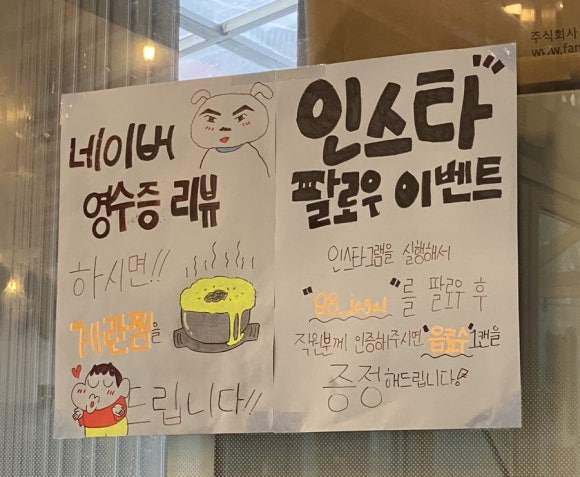 네이버
영수증 리뷰
하시면!!
계란찜을
드립니다!!
인스타
팔로우 이벤트
인스타그램을 실행해서
"88_jajal"를 팔로우 후
직원분께 인증해주시면 "음료수" 1캔을
증정해드립니다!
주식회사
www.fan